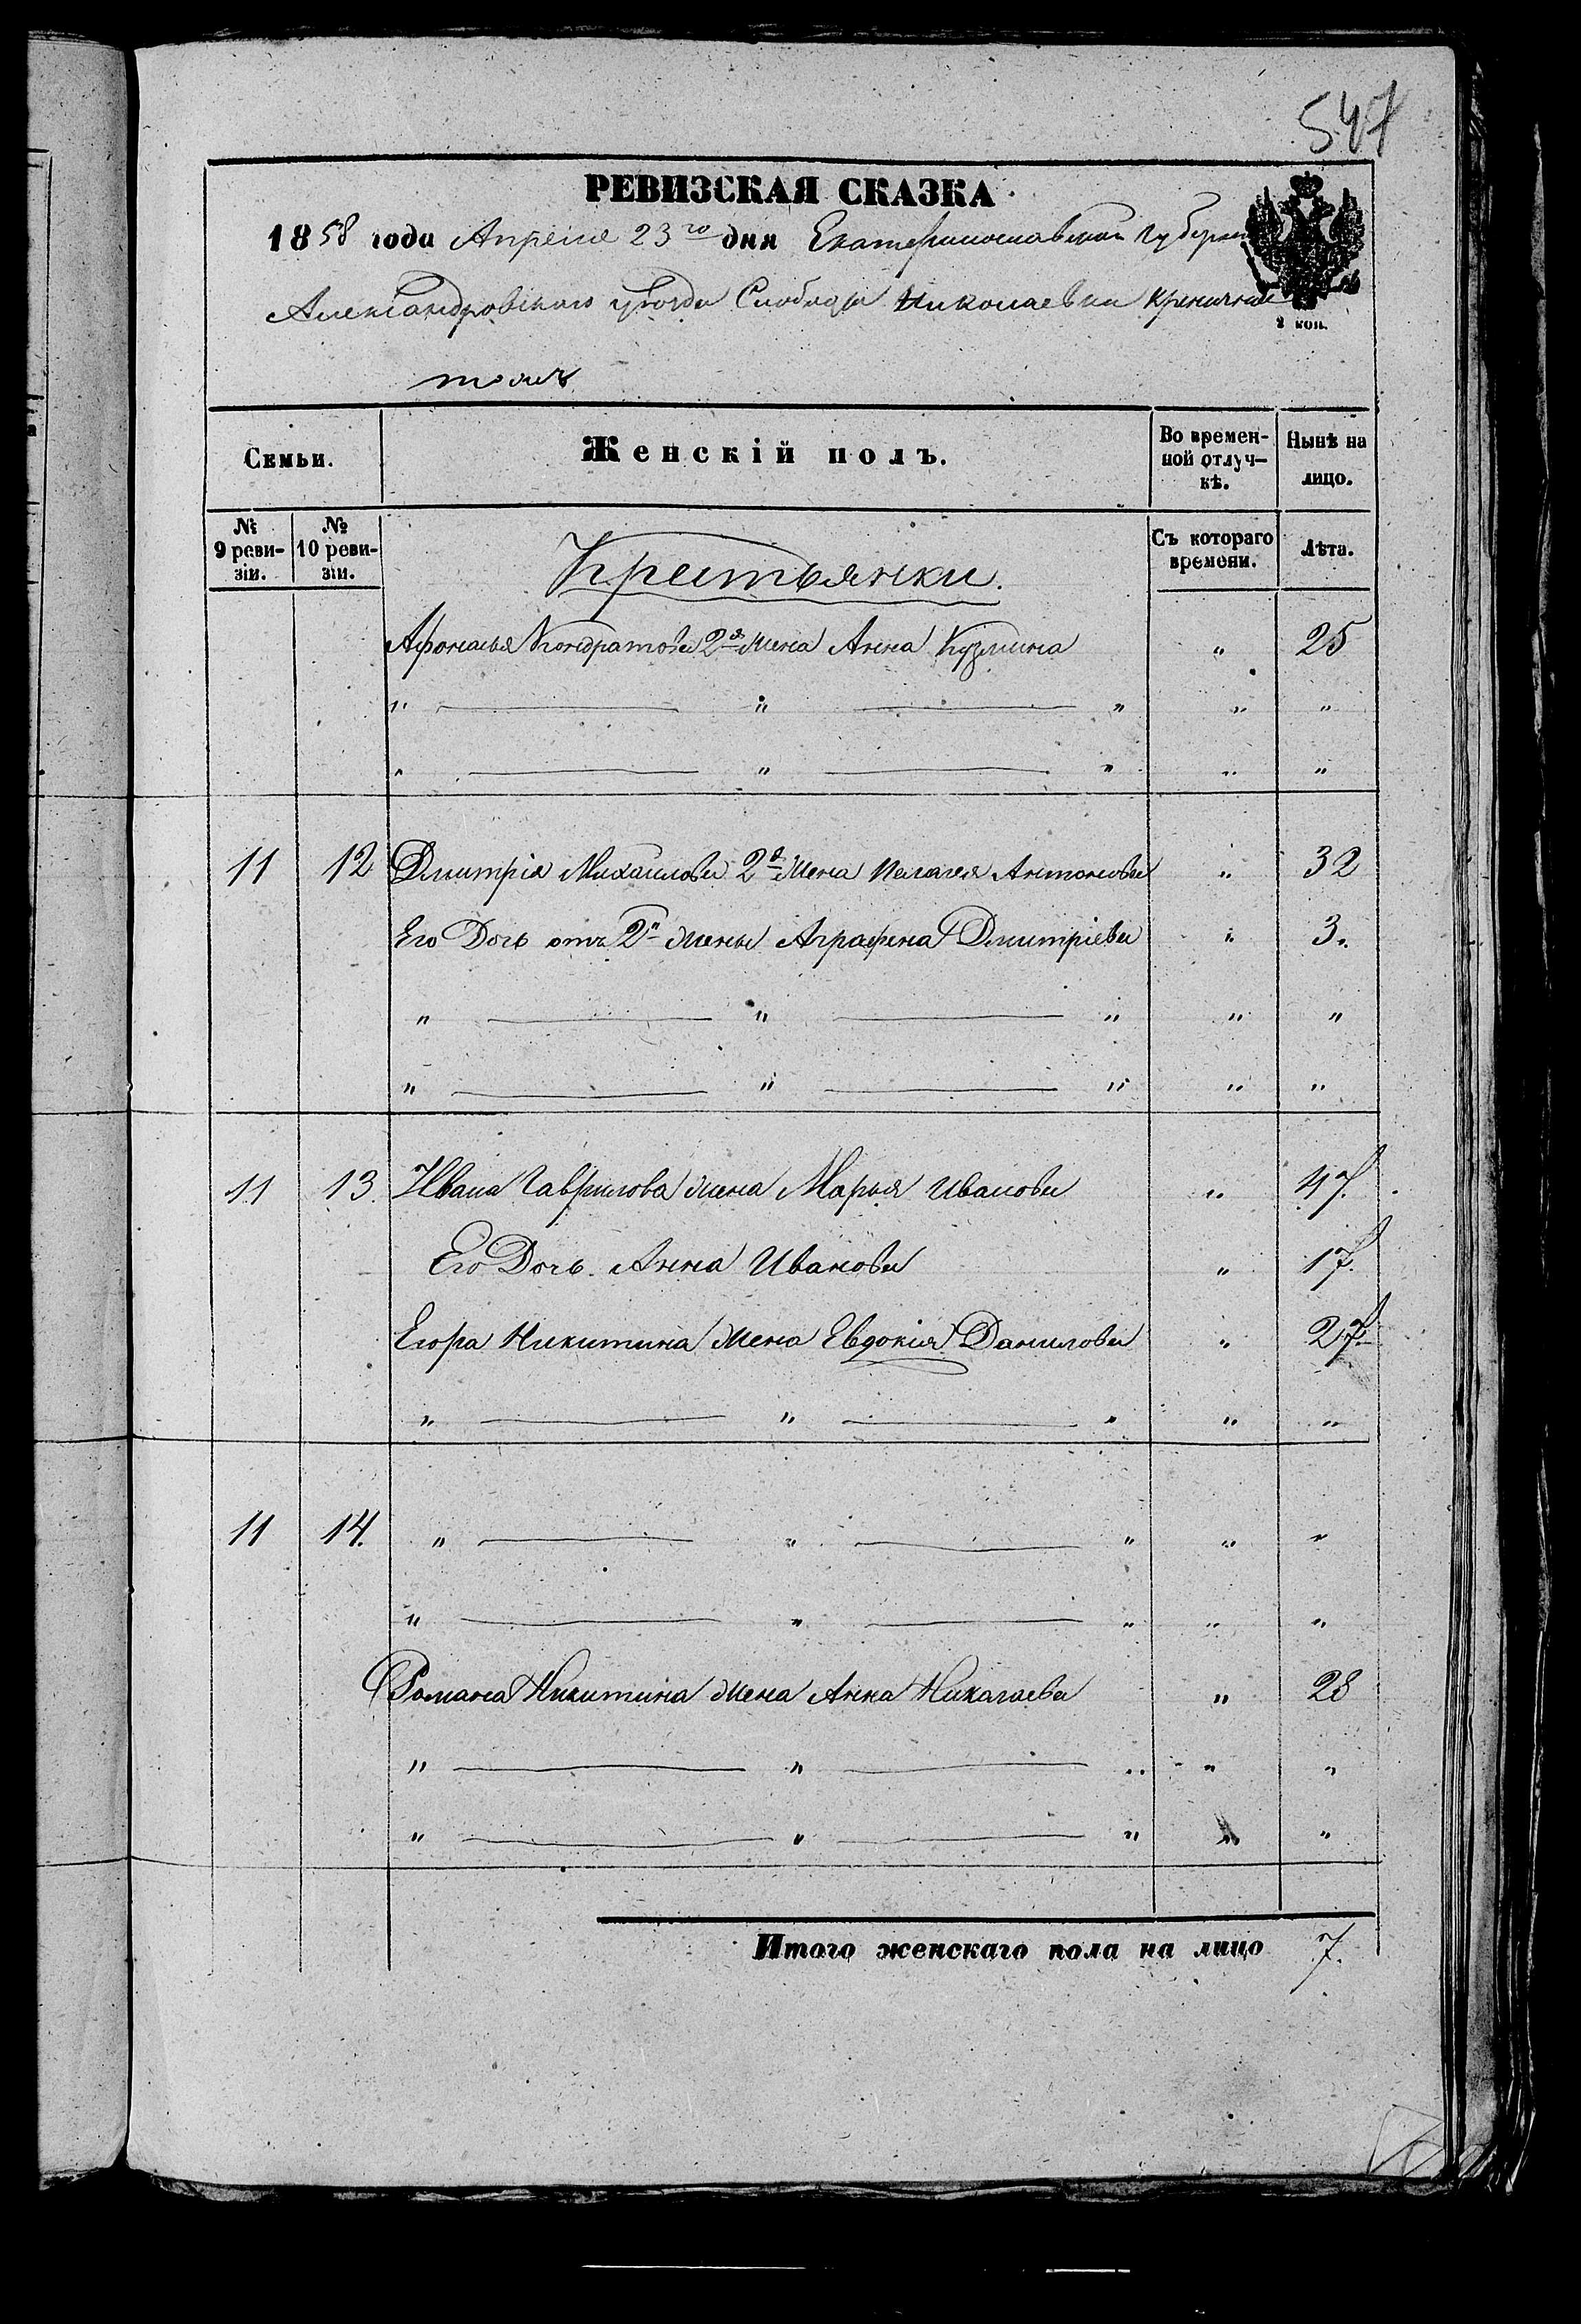 547
РЕВИЗСКАЯ СКАЗКА
1858 года Апреля 23го дня Екатеринославской Губернии
Александровскаго уѣзда Слободы Николаевки
тожъ
2 коп.
Семьи. Женскій полъ. Во времен- Нынѣ на
ной отлуч- лицо.
кѣ.
№ № Съ котораго Лѣта.
9 реви- 10 реви- времени.
зіи. зіи.
Крестьянки.
Афонасья Кондратова 2я жена Анна Кузмина " 25
" " " " "
" " " " "
11 12 Дмитрія Михайлова 2я жена Пелагея Антонова " 32
Его Дочь отъ 2й жены Аграфена Дмитріева " 3.
" " " " "
" " " " "
11 13 Ивана Гаврилова жена Марья Иванова " 47.
Его Дочь Анна Иванова " 17.
Егора Никитина жена Евдокия Данилова " 27.
" " " " "
11 14. " " " " "
" " " " "
Романа Никитина жена Анна Николаева " 28
" " " " "
" " " " "
Итого женскаго пола на лицо 7.